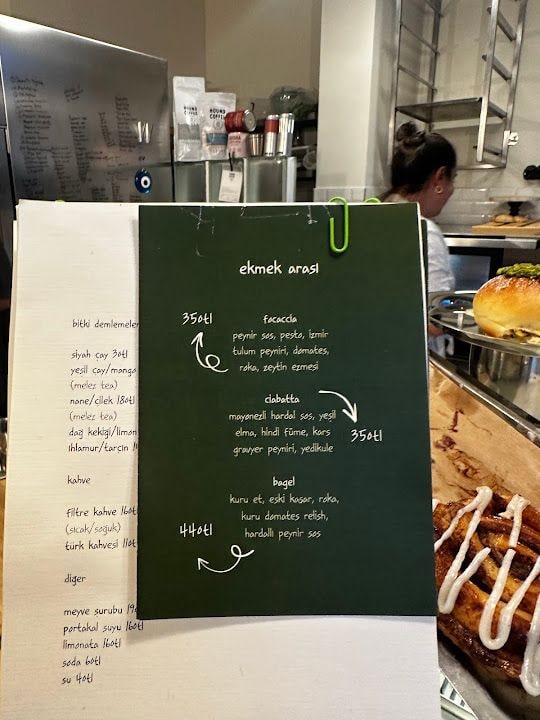 HOUND
COFFEE
ekmek arası
350tl
focaccia
peynir sos, pesto, izmir
tulum peyniri, domates,
roka, zeytin ezmesi
ciabatta
mayonezli hardal sos, yeşil
elma, hindi füme, kars
gravyer peyniri, yedikule
350tl
bagel
kuru et, eski kaşar, roka,
kuru domates relish,
hardallı peynir sos
440tl
bitki demlemeler
siyah çay 30tl
yeşil çay/mango
(melez tea)
nane/çilek 180tl
(melez tea)
dağ kekiği/limon
ıhlamur/tarçın
kahve
filtre kahve 160t
(sıcak/soğuk)
türk kahvesi 110t
diğer
meyve şurubu 190
portakal suyu 160tl
limonata 160tl
soda 60tl
su 40tl